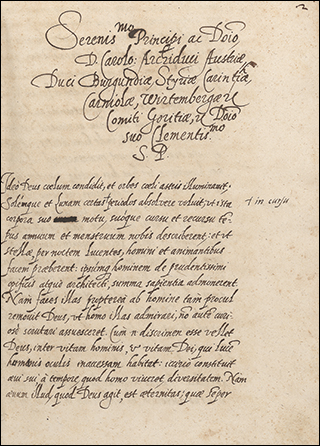 2
Serenis.mo Principi ac Dn͞o
D. Carolo: Archiduci Austriæ
Duci Burgundiæ, Styriæ Carintiæ
Carniolæ, Wirtembergæ &
Comiti Goritiæ, & Dn͞o
suo Clementis.mo
S. P.
Ideo Deus cœlum condidit, et orbes cœli astris illuminavit:
Solemque et Lunam certas periodos absolvere voluit: ut ista + in cursu
corpora suo motu, suoque cursu et recursu te͞-
pus annuum et menstruum nobis describerent: et ut
stellæ per noctem lucentes, homini et animantibus
facem præberent: ipsumq hominem de prudentissimi
opificis atque architecti, summa sapientia admonerent.
Nam faces illas propterea ab homine tam procul
removit Deus, ut homo illas admirari, no͞ aute͞ curi-
ose scrutari assuesceret. Cum n. discrimen esse vellet
Deus, inter vitam hominis, & vitam Dei, qui Luce͞
hominis oculis inaccessam habitat:
qui sui à tempore, quod homo viveret diversitatem. Nam
ævum illud, quod Deus agit, est æternitas: quæ semper